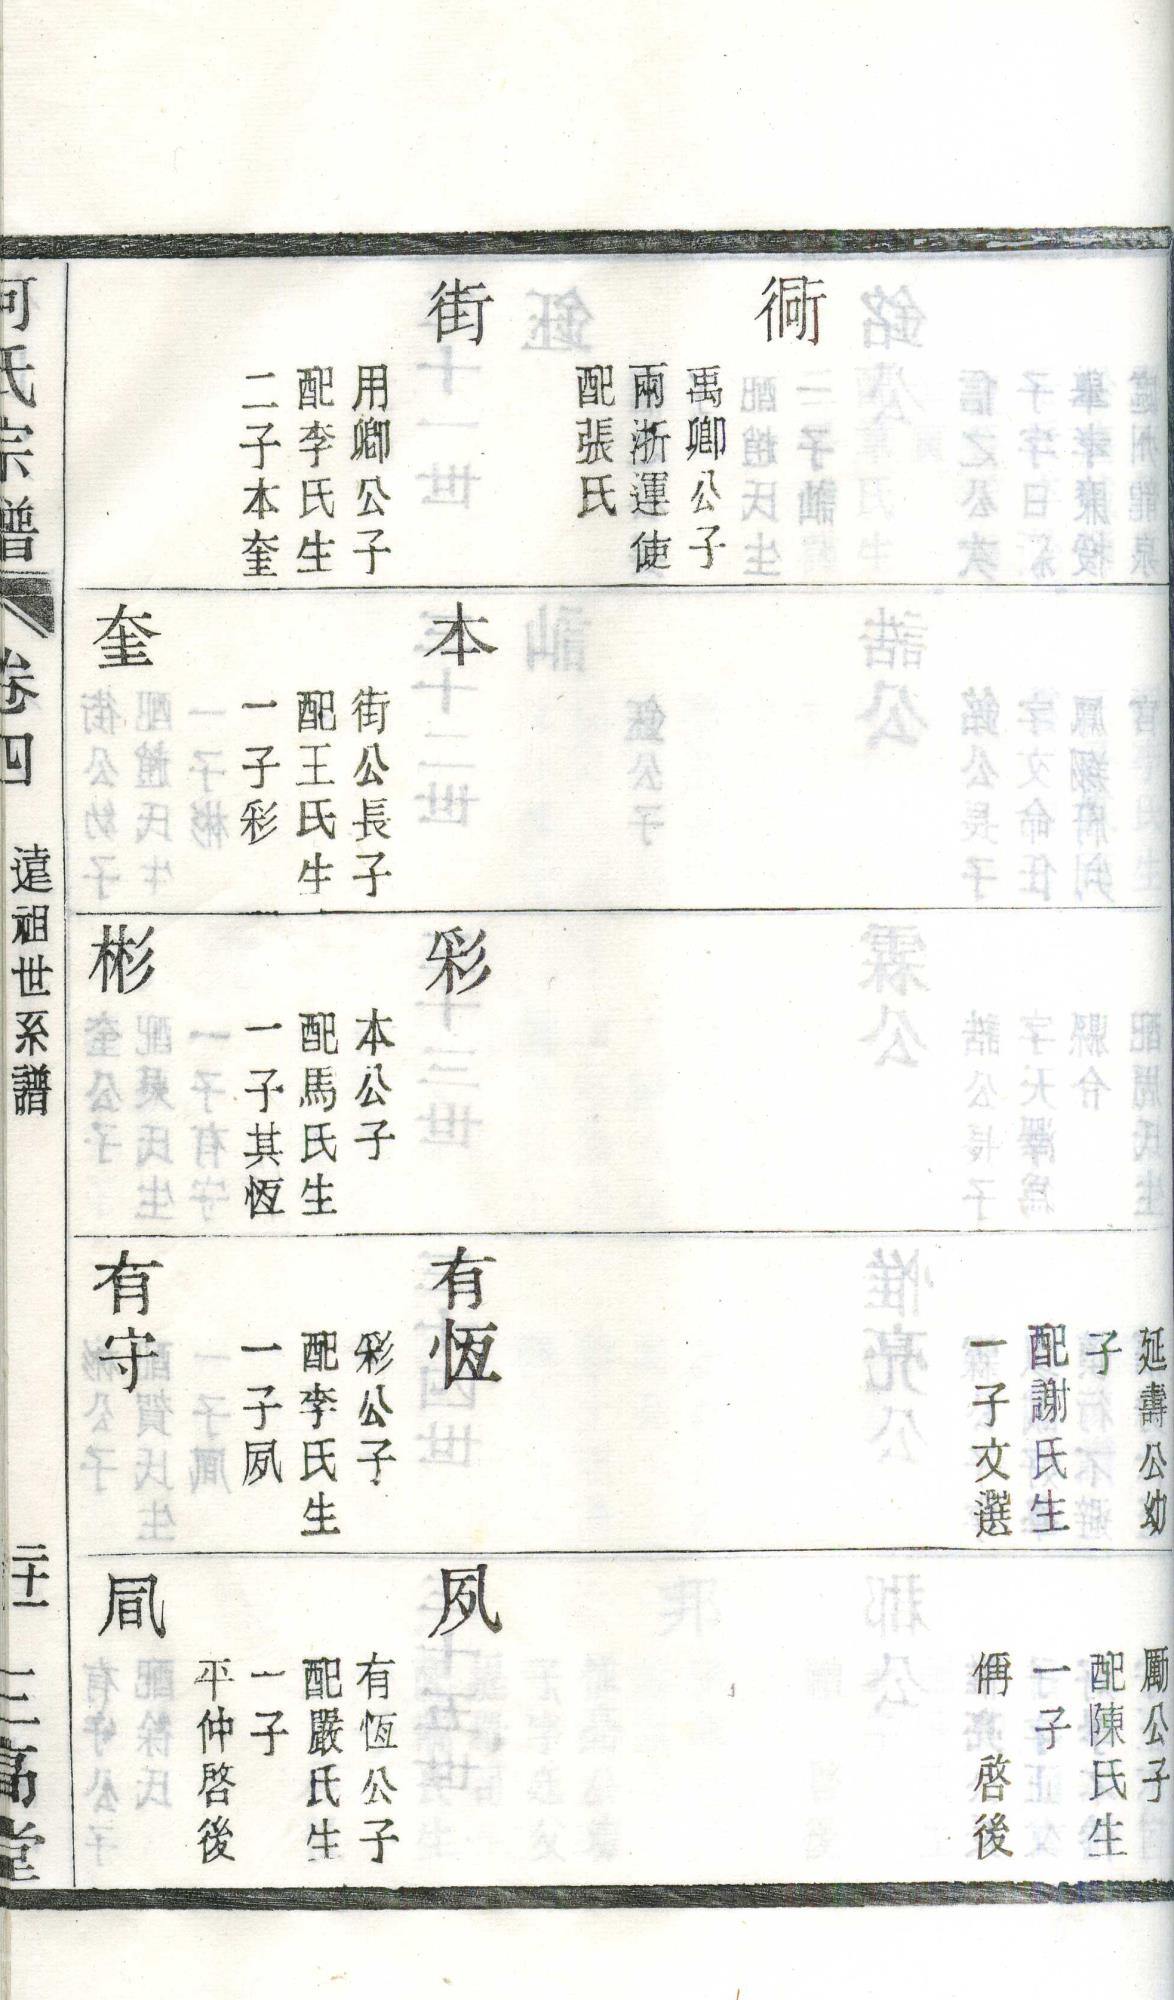 衕
禹卿公子
兩浙運使
配張氏
街
用卿公子
配李氏生
二子本奎
本
街公長子
配王氏生
一子彩
奎
彩
本公子
配馬氏生
一子其恆
彬
延壽公幼
子
配謝氏生
一子文選
有恆
彩公子
配李氏生
一子夙
有守
勵公子
配陳氏生
一子
侢 啓後
夙
有恆公子
配嚴氏生
一子
平仲啓後
凬
何氏宗譜
卷四
遠祖世系譜
二十一
三高堂